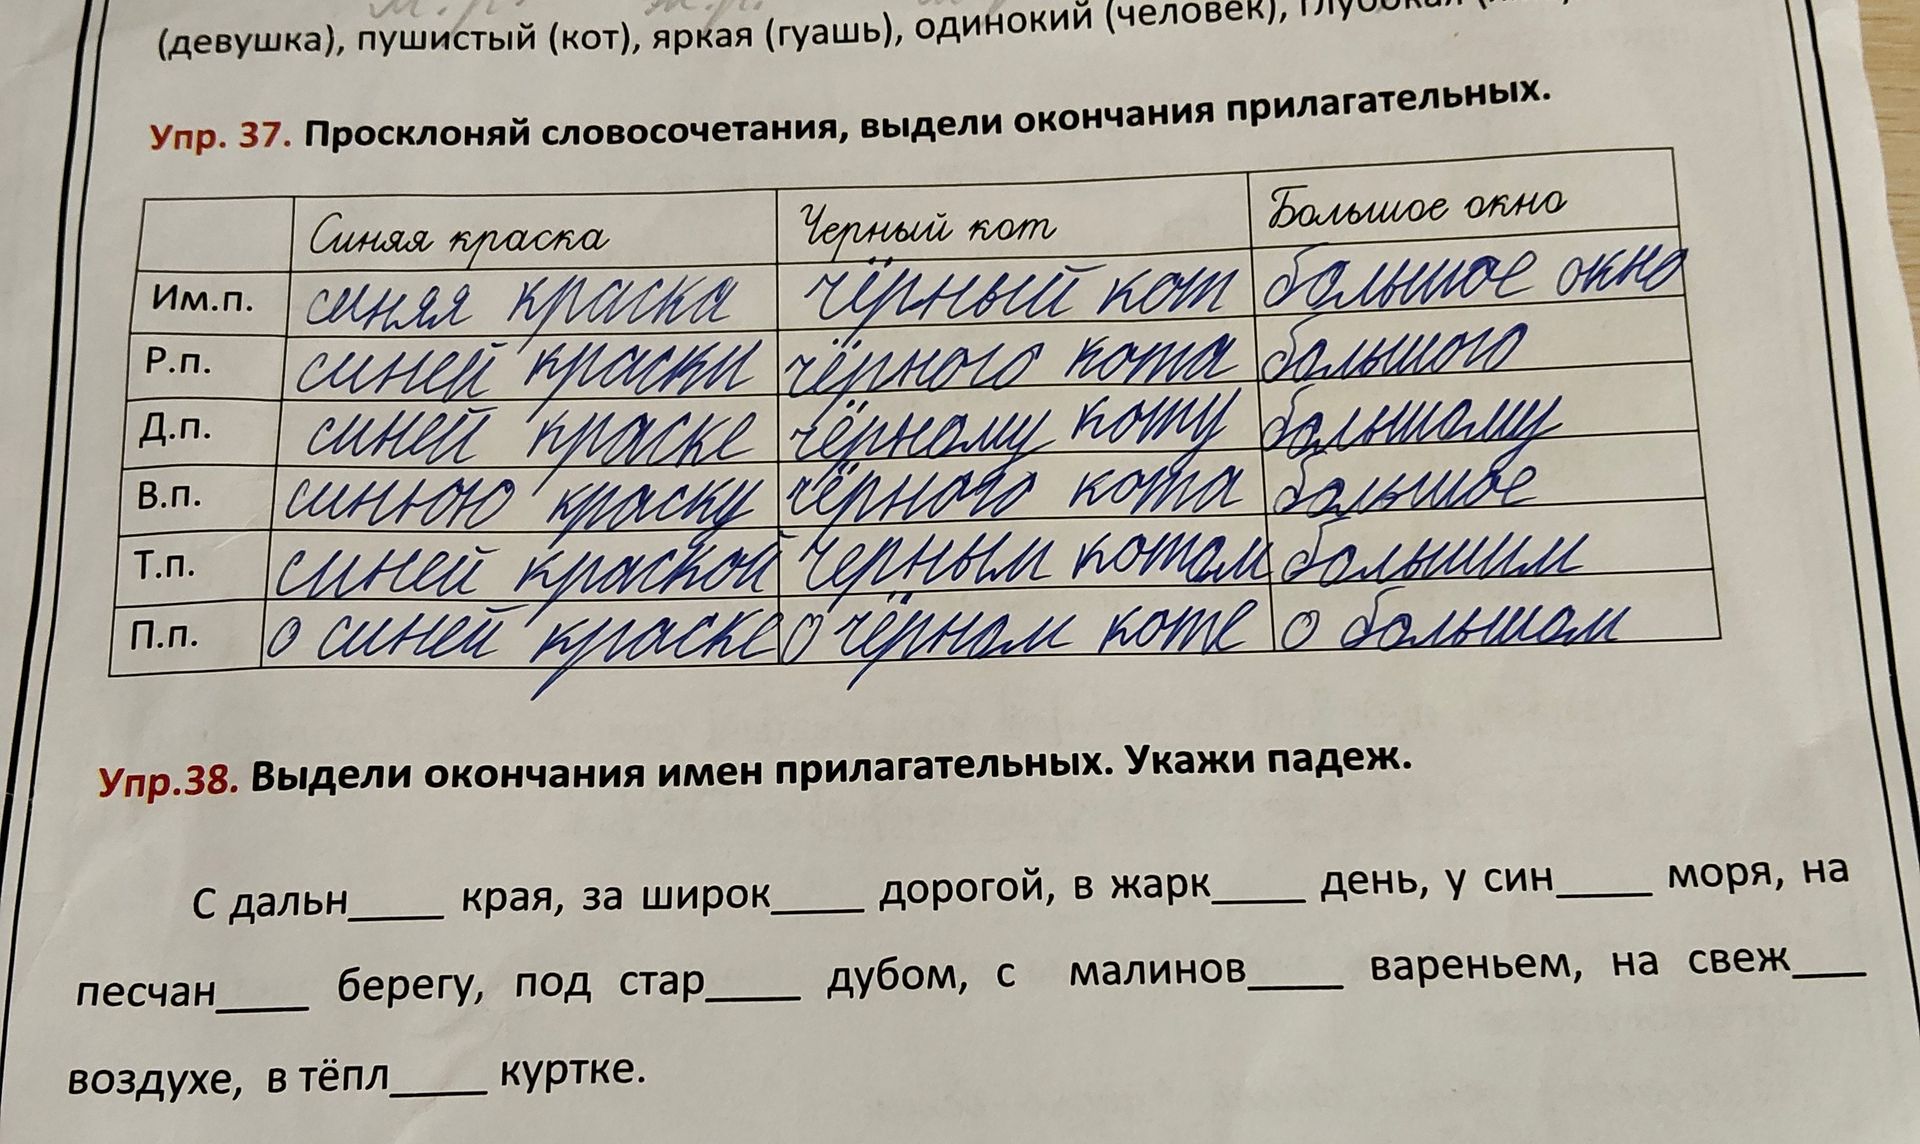 (девушка), пушистый (кот), яркая (гуашь), одинокий (человек),
Упр. 37. Просклоняй словосочетания, выдели окончания прилагательных.
Синяя краска Черный кот Большое окно
Им.п. синяя краска чёрный кот большое окно
Р.п. синей краски чёрного кота большого
Д.п. синей краске чёрному коту большому
В.п. синюю краску чёрного кота большое
Т.п. синей краской черным котом большим
П.п. о синей краске о чёрном коте о большом
Упр.38. Выдели окончания имен прилагательных. Укажи падеж.
С дальн____ края, за широк____ дорогой, в жарк____ день, у син____ моря, на
песчан____ берегу, под стар____ дубом, с малинов____ вареньем, на свеж___
воздухе, в тёпл____ куртке.